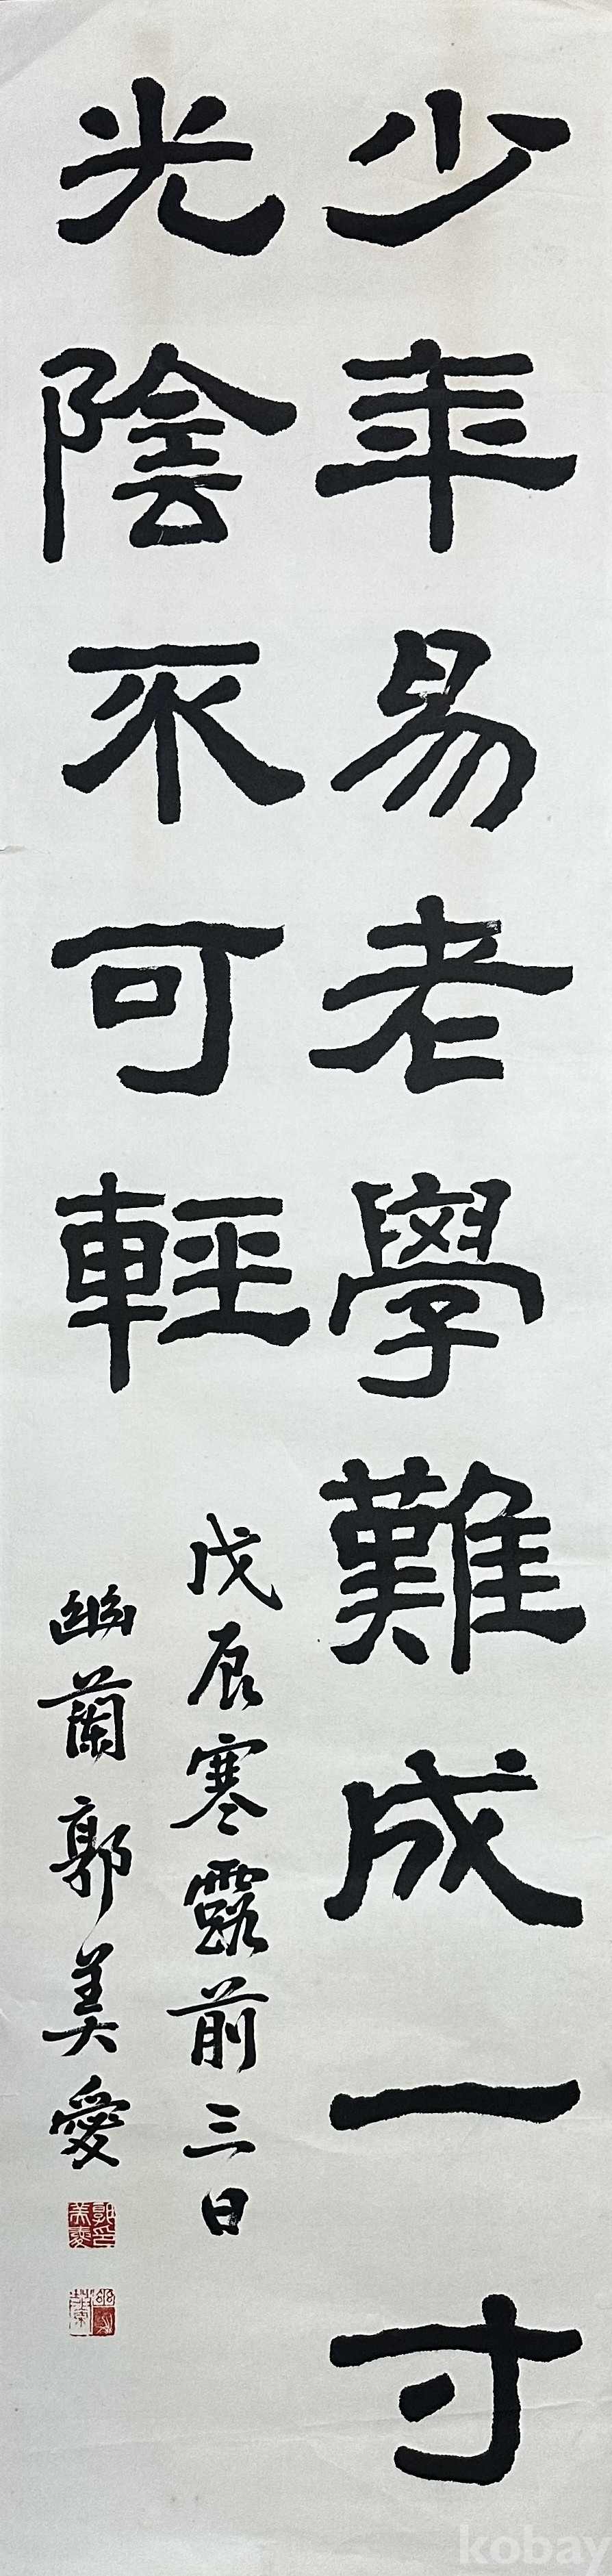 少年易老學難成一寸
光陰不可輕
戊辰寒露前三日
幽蘭郭美愛
郭美愛印
kobay